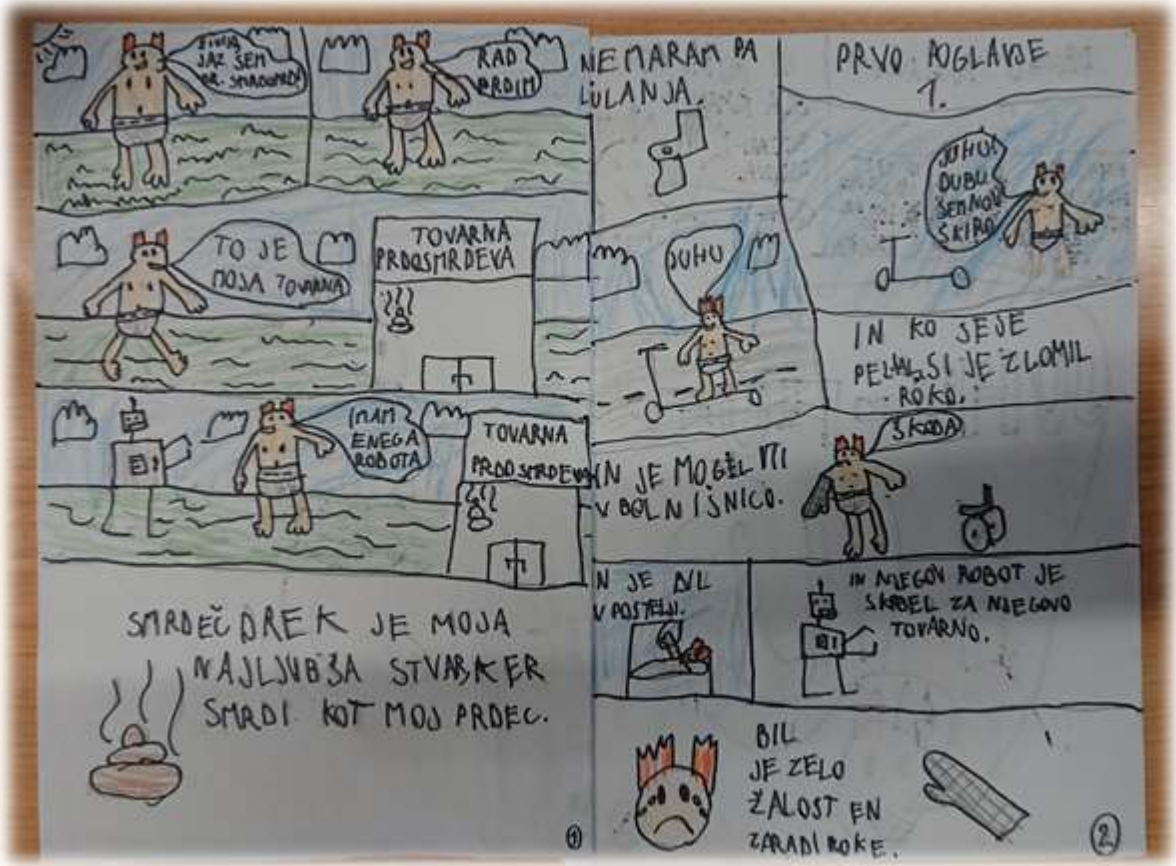 ŽIVJA
JAZ ŠEM
DR. SMRDOPRDI
RAD
PRDIM
TO JE
MOJA TOVARNA
TOVARNA
PRDOSMRDEVA
IMAM
ENEGA
ROBOTA
TOVARNA
PRDOSMRDEVA
SMRDEČ DREK JE MOJA
NAJLJUBŠA STVAR KER
SMRDI KOT MOJ PRDEC.
1
NEMARAM PA
LULANJA.
PRVO POGLAVJE
1.
JUHU!
DUBU
ŠEM NOV
ŠKIRO
JUHU
IN KO SEJE
PELJAL SI JE ZLOMIL
ROKO.
IN JE MOGEL ITI
V BOLNIŠNICO.
ŠKODA
IN JE BIL
V POSTELJI.
IN NJEGOV ROBOT JE
SKRBEL ZA NJEGOVO
TOVARNO.
BIL
JE ZELO
ŽALOSTEN
ZARADI ROKE.
2